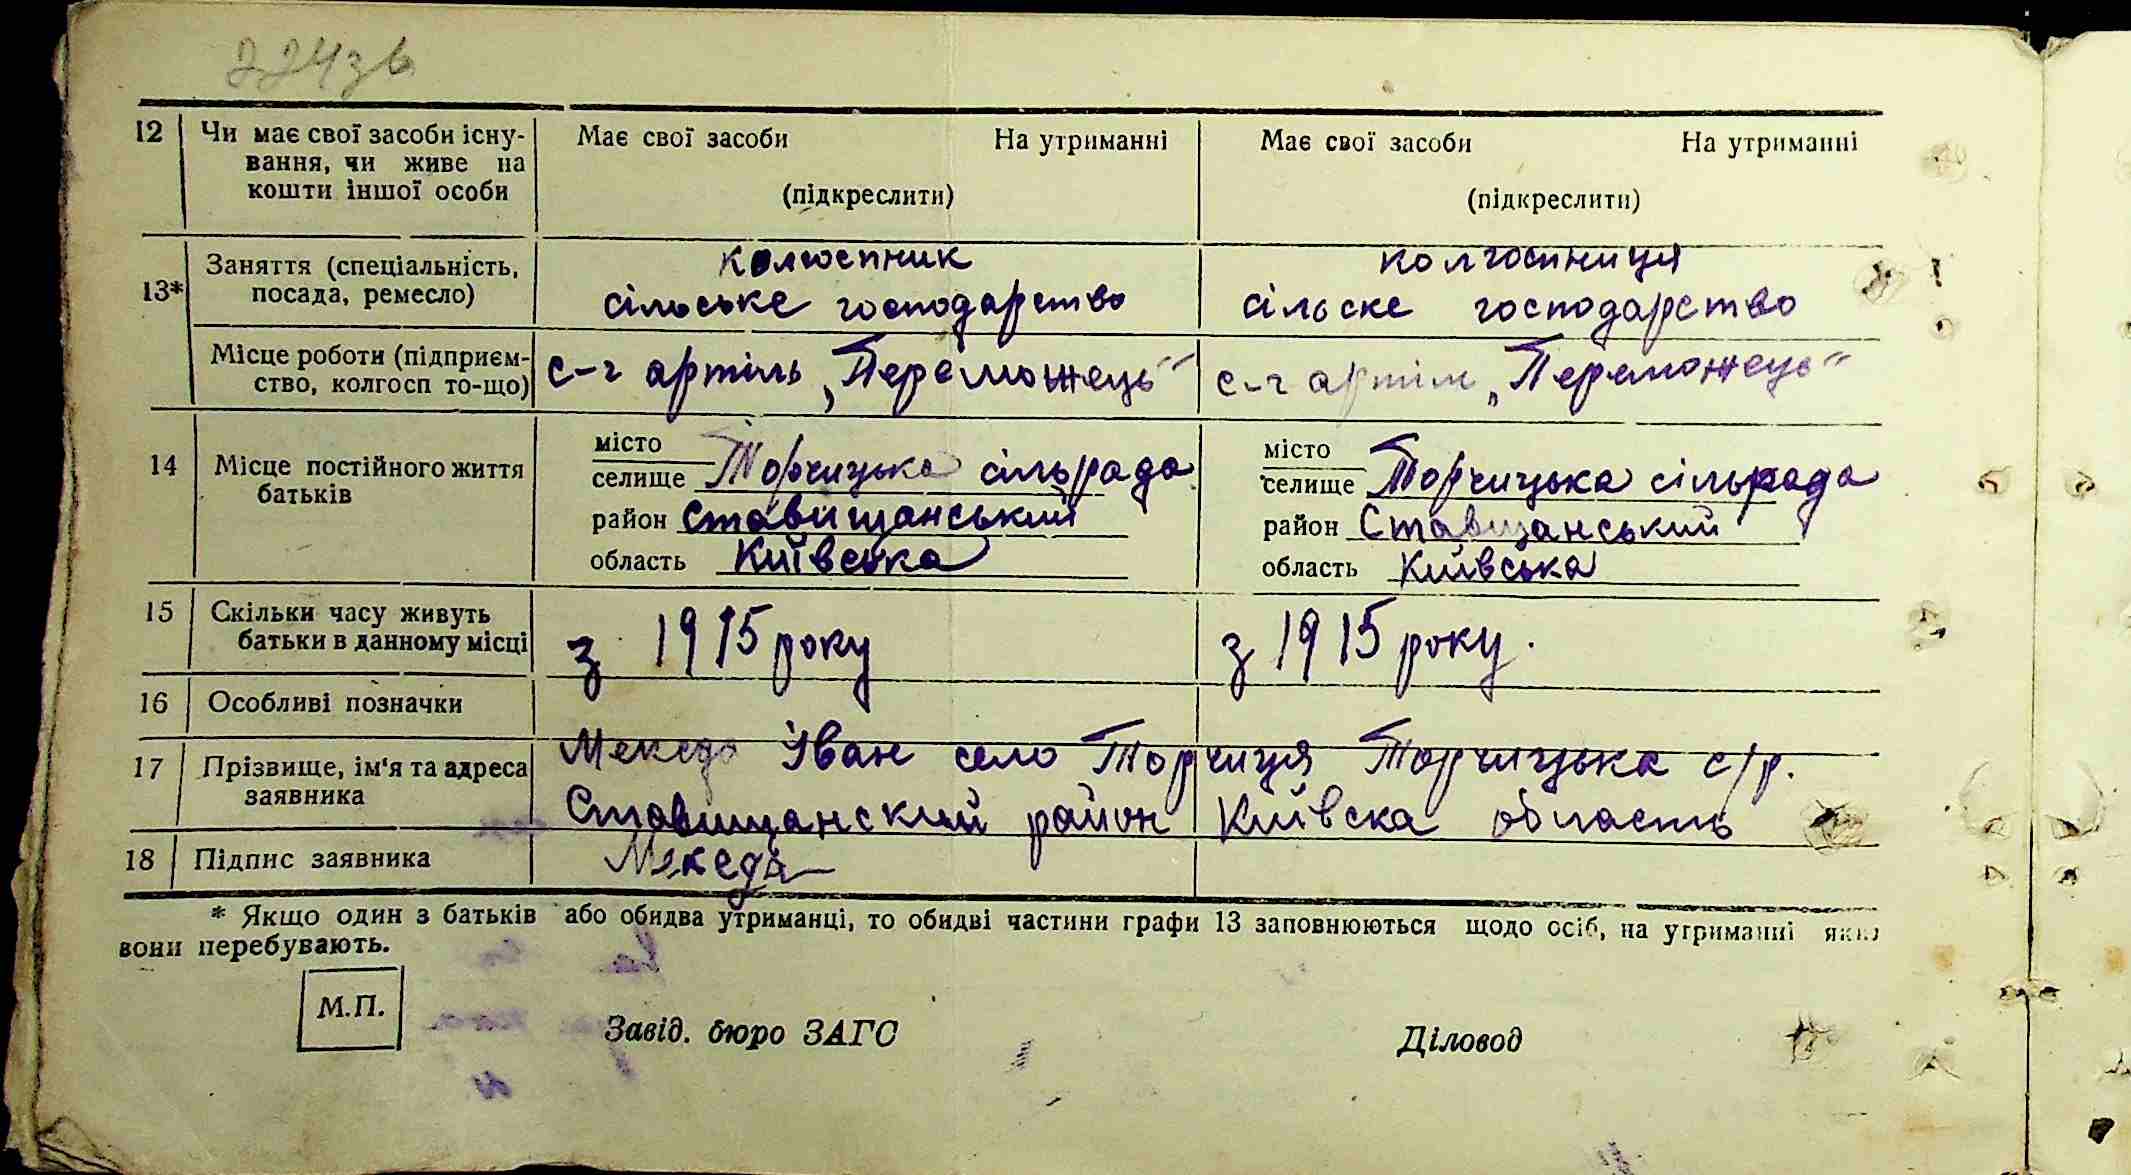 224зв
12 Чи має свої засоби існу- Має свої засоби На утриманні Має свої засоби На утриманні
вання, чи живе на
кошти іншої особи (підкреслити) (підкреслити)
13* Заняття (спеціальність, колгоспник колгоспниця
посада, ремесло) сільське господарство сільске господарство
Місце роботи (підприєм- с-г артіль „Переможець" с-г артіль „Переможець"
ство, колгосп то-що)
14 Місце постійного життя місто місто
батьків селище Торчицька сільрада селище Торчицька сільрада
район Ставищанський район Ставщанський
область Київська область Київська
15 Скільки часу живуть з 1915 року з 1915 року.
батьки в данному місці
16 Особливі позначки
17 Прізвище, ім'я та адреса Мекеда Іван село Торчиця Торчицька с/р.
заявника Ставищанский район Київска область
18 Підпис заявника Мекеда
* Якщо один з батьків або обидва утриманці, то обидві частини графи 13 заповнюються щодо осіб, на утриманні яких
вони перебувають.
М.П.
Завід. бюро ЗАГС Діловод